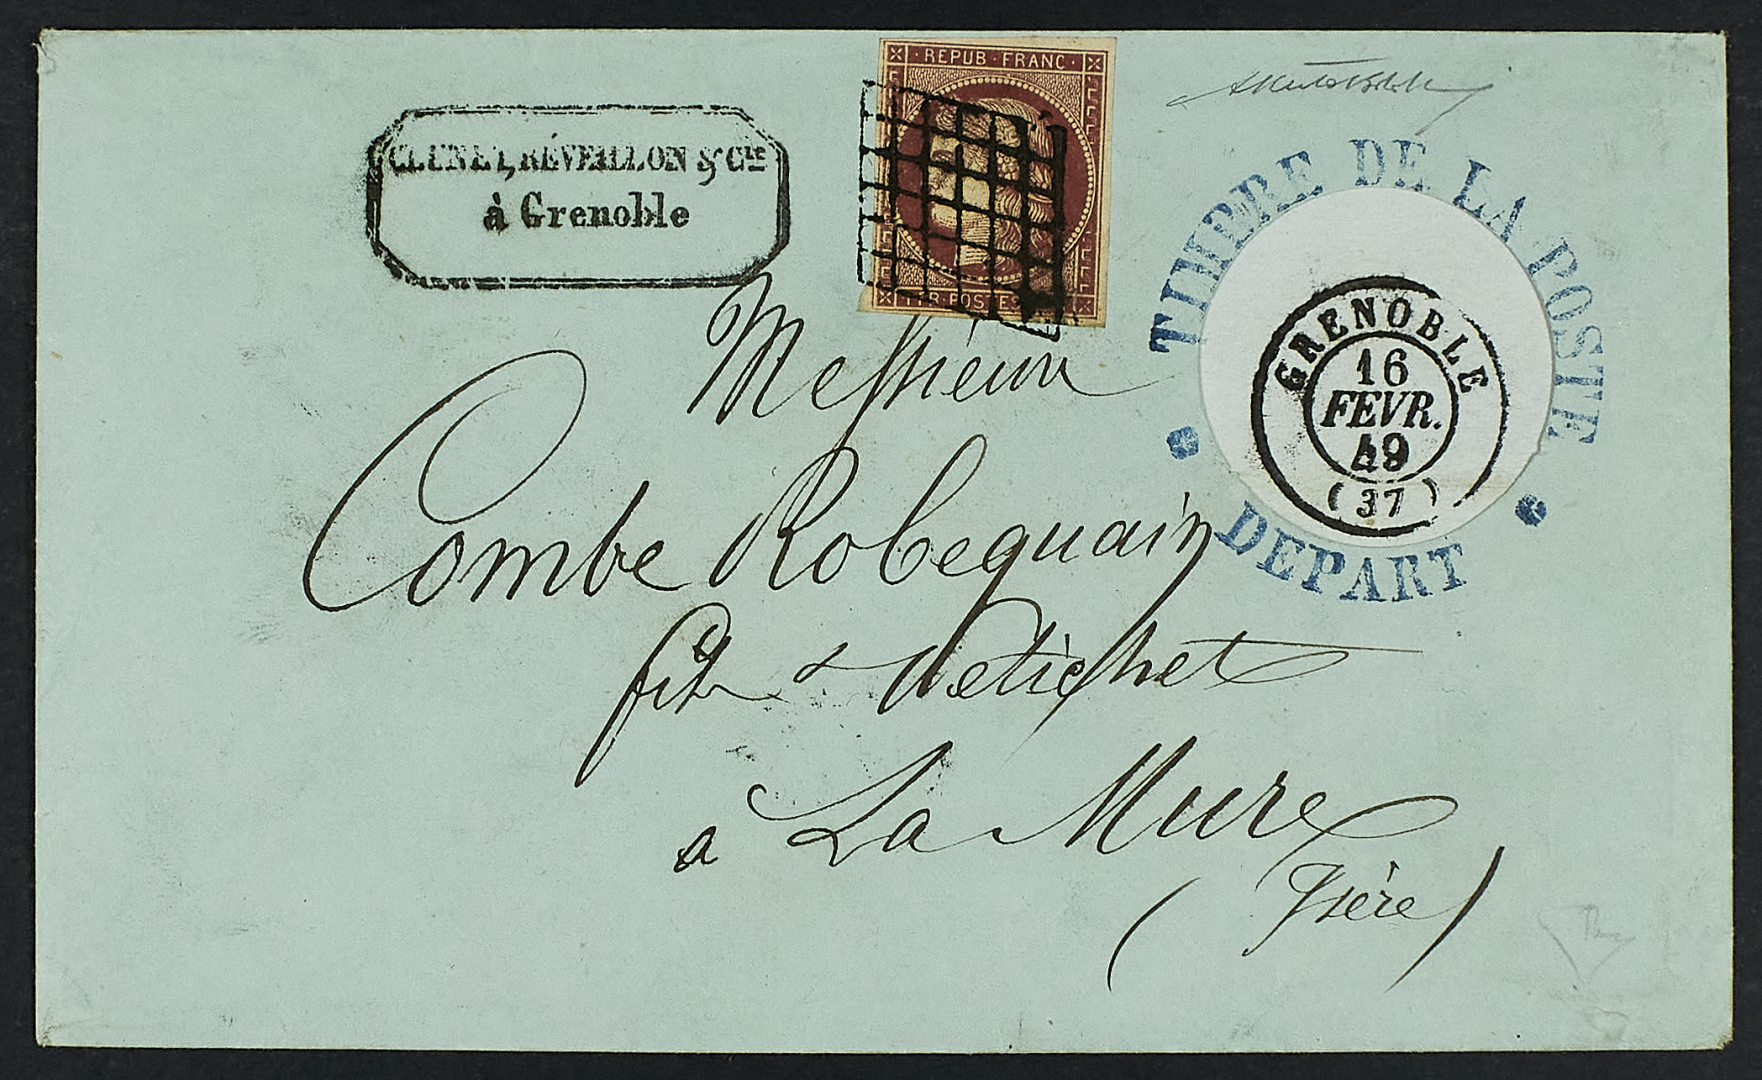 CLUNET, RÉVEILLON & Cie
à Grenoble
REPUB · FRANC ·
1 FR · POSTES
TIMBRE DE LA POSTE
DEPART
GRENOBLE
16
FEVR.
49
(37)
Messieurs
Combe Robequain
fils &
à La Mure
(Isère)